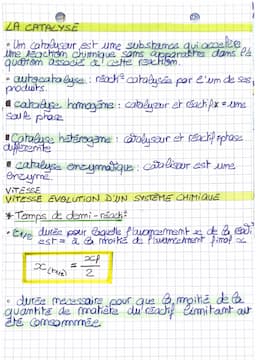 LA CATALYSE
• Un catalyseur est une substance qui accélère
une réaction chimique sans apparaître dans l'é
quation associé à cette réaction.
• autocatalyse : réactº catalysée par l'un de ses
produits.
catalyse homogène : catalyseur et réactif/x = une
seule phase
Catalyse hétérogène : catalyseur et réactif phase
différente
catalyse enzymatique : catalyseur est une
enzyme.
VITESSE
VITESSE EVOLUTION D'UN SYSTÈME CHIMIQUE
* Temps de demi-réactº
• t1/2 durée pour laquelle l'avancement x de la réactº
est = à la moitié de l'avancement final xf
x(t1/2) = xf/2
• durée nécessaire pour que la moitié de la
quantité de matière du réactif limitant ait
été consommée.